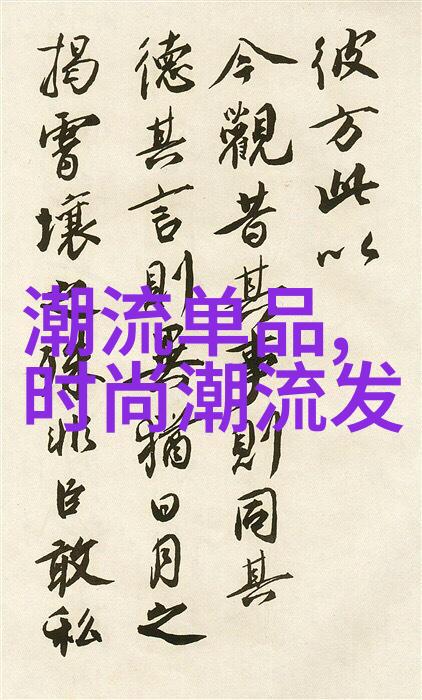 彼方此以
今觀昔其事則同其
德其言則異猶日月之
揭霄壤之殊非臣敢私
潮流单品,
时尚潮流发